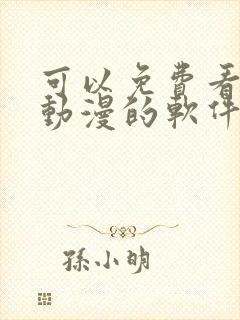 可以免費看
動漫的軟件
孫小明